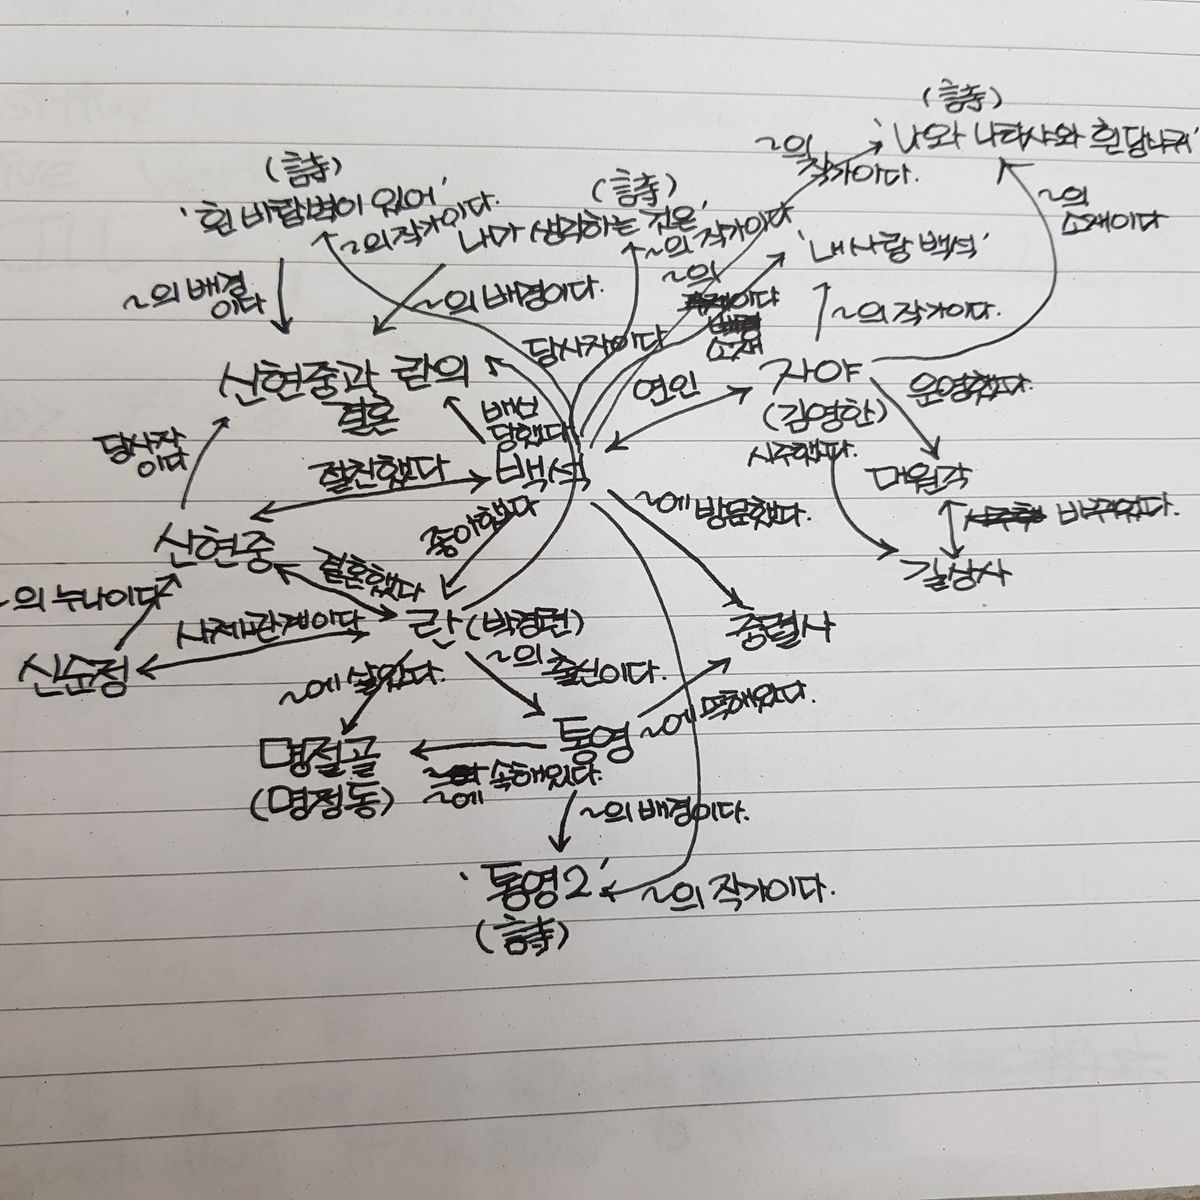 (詩)
'나와 나타샤와 흰 당나귀'
~의
작가이다.
~의
소재이다
(詩)
'흰 바람벽이 있어'
~의 작가이다.
(詩)
나가 생각하는 것은'
~의 작가이다
'내 사랑 백석'
~의 배경
이다
~의 배경이다.
~의
이다
소재
~의 작가이다.
당사자이다
신현중과 란의
결혼
배신
당했다
연인
자야
(김영한)
운영했다.
시주했다.
당사자
이다
절친했다
백석
대원각
바뀌었다.
길상사
좋아했다
~에 방문했다.
신현중
결혼했다
~의 누나이다
사제관계이다
란 (박경련)
충렬사
신순정
~에 살았다.
~의 출신이다.
통영
~에 속해있다.
명절골
(명정동)
~에 속해있다.
~의 배경이다.
'통영2'
(詩)
~의 작가이다.